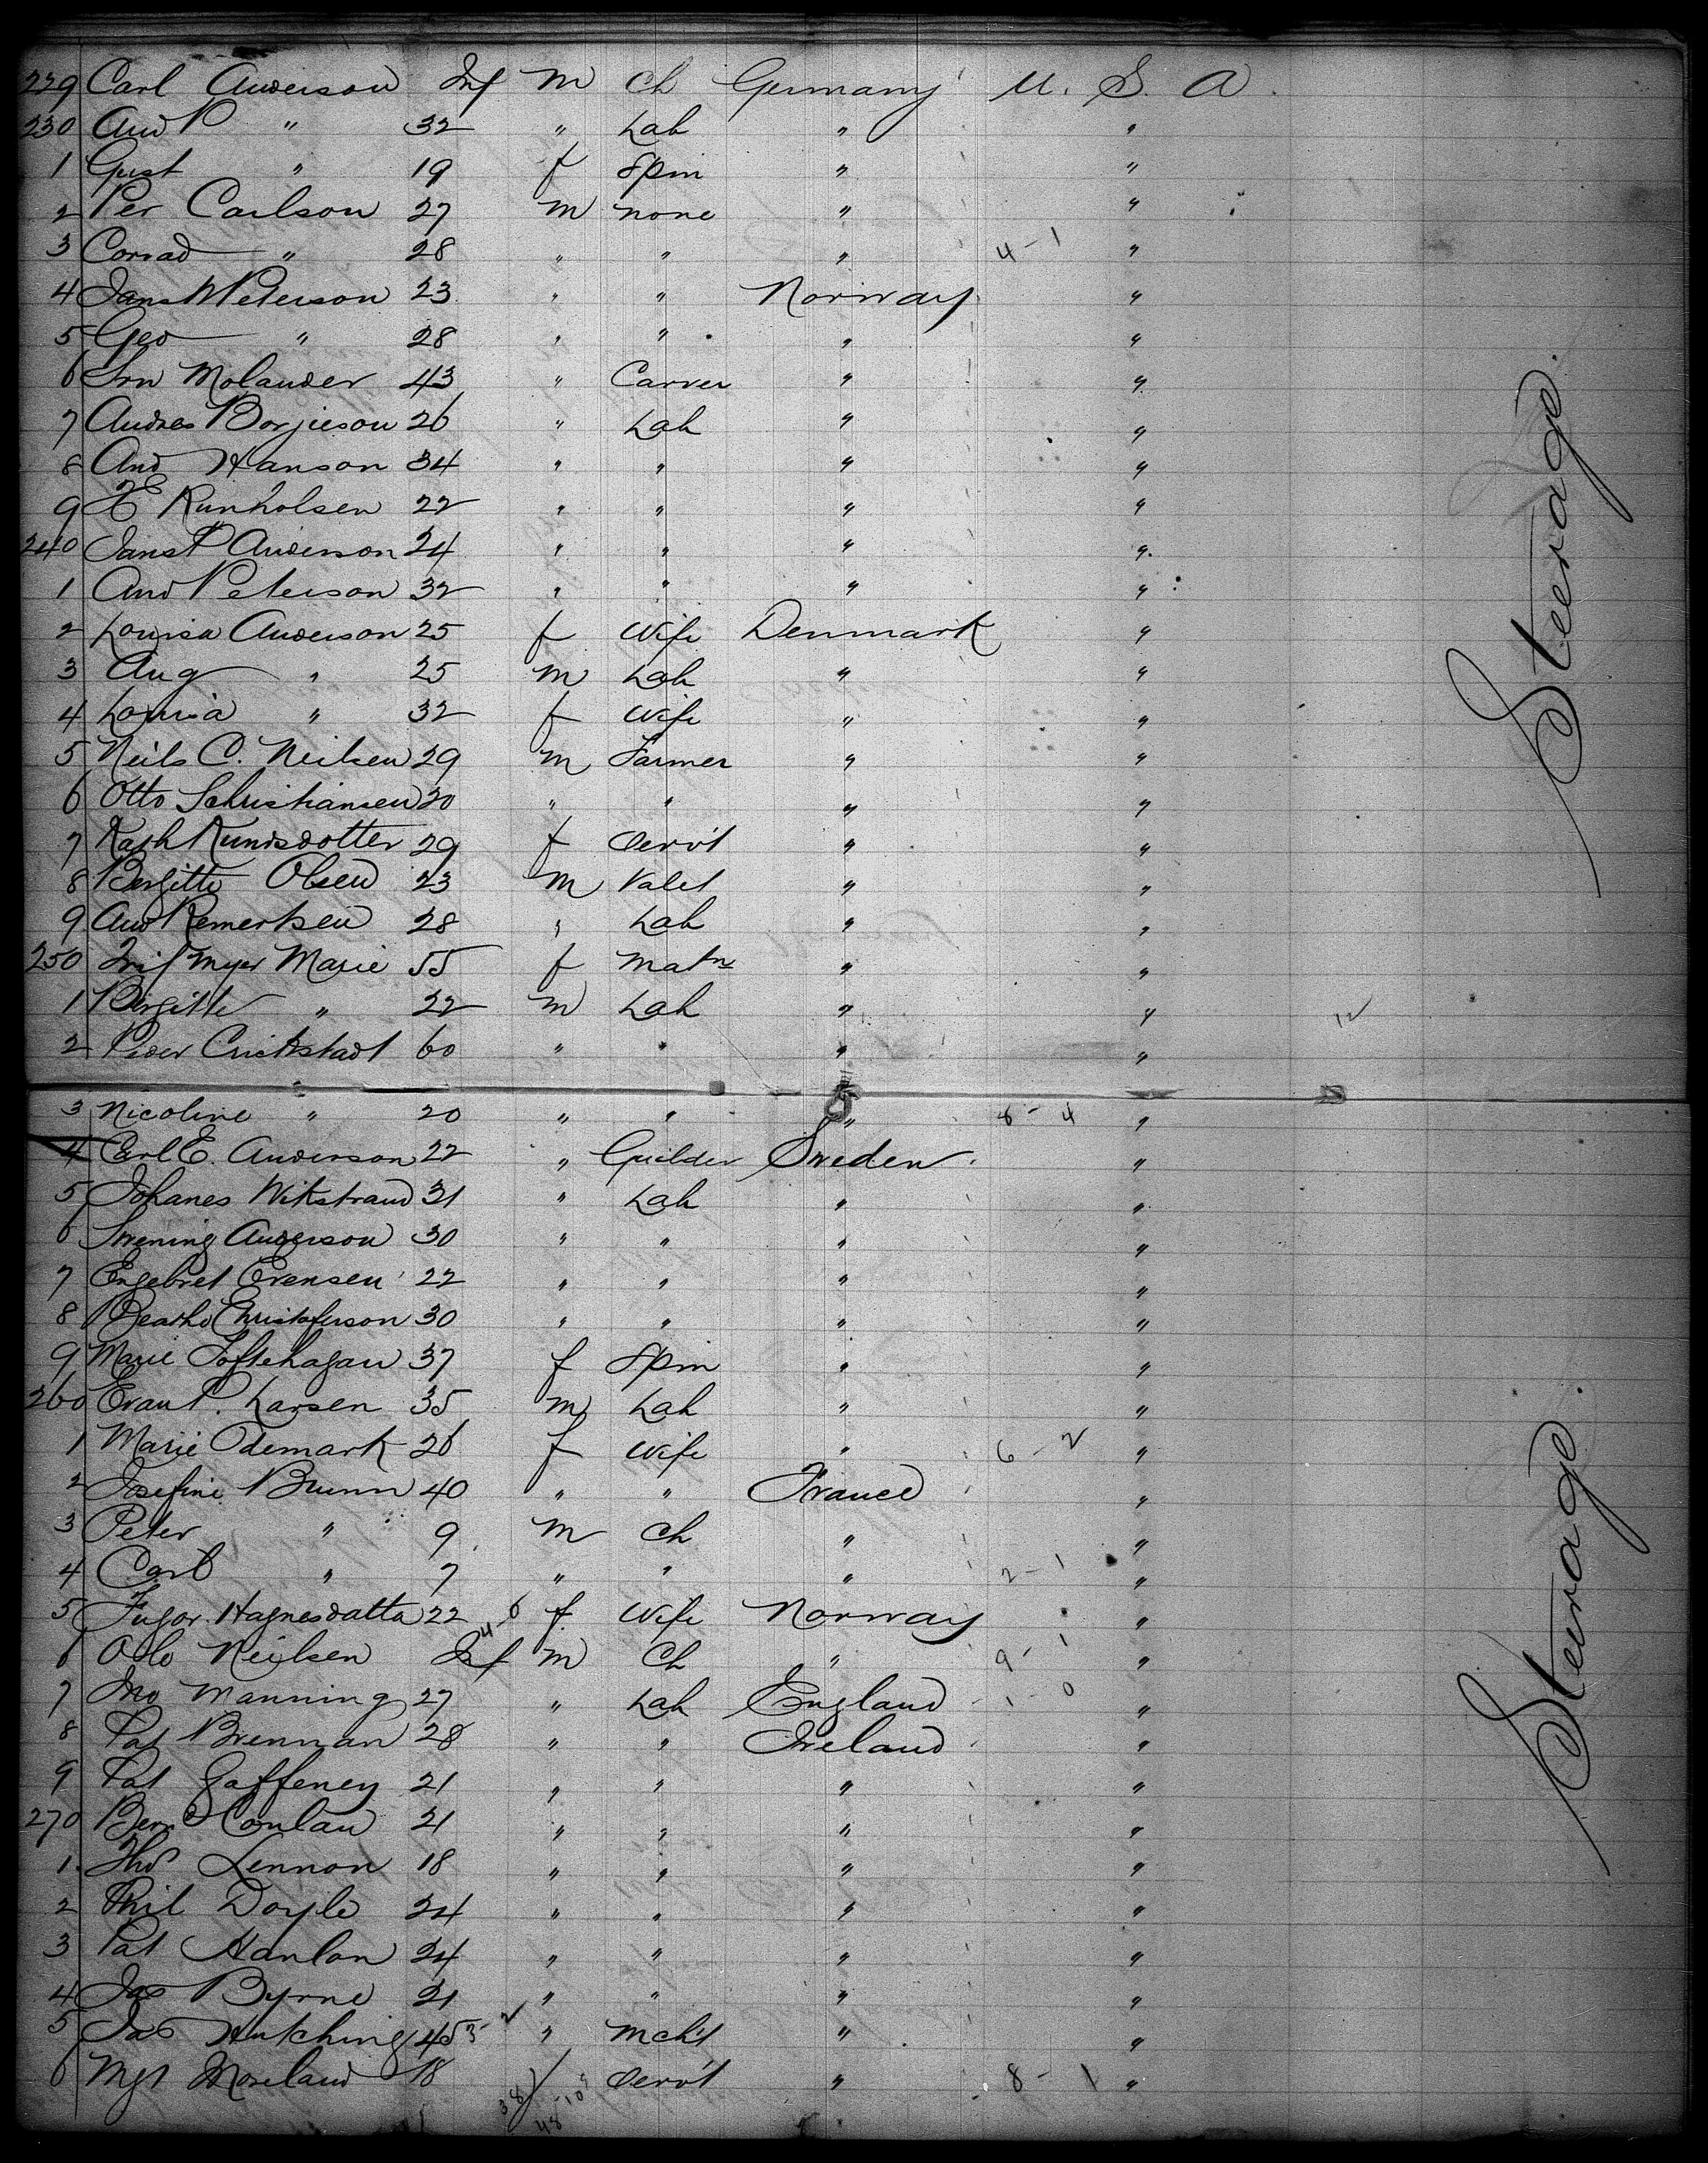 229 Carl Anderson Inf m Ch Germany U. S. A.
230 And P " 32 " Lab " "
1 Gust " 19 f Spin " "
2 Per Carlson 27 m none " "
3 Conrad " 28 " " " 4-1 "
4 Jans N Peterson 23 " " Norway "
5 Geo " 28 " " " "
6 Molander 43 " Carver " "
7 Andres Borjieson 26 " Lab " "
8 And Hanson 34 " " " "
9 E Runholsen 22 " " " "
240 Jans P Anderson 24 " " " "
1 And Peterson 32 " " " "
2 Louisa Anderson 25 f Wife Denmark "
3 Aug " 25 m Lab " "
4 Louisa " 32 f Wife " "
5 Neils C. Neilsen 29 m Farmer " "
6 Otto Schristiansen 20 " " " "
7 29 f Serv't " "
8 Bergitte Olsen 23 m Valet " "
9 And Remertsen 28 " Lab " "
250 Myer Marie 55 f Matn " "
1 Bergitte " 22 m Lab " " 12
2 Peder 60 " " " "
3 Nicoline " 20 " " " 8-4 "
4 Carl E. Anderson 22 " Guilder Sweden "
5 Johanes Wikstrand 31 " Lab " "
6 Anderson 30 " " " "
7 Engebret Evensen 22 " " " "
8 Christoferson 30 " " " "
9 Marie Loftehagan 37 f Spin " "
260 Evan P. Larsen 35 m Lab " "
1 Marie Odemark 26 f Wife " 6-2 "
2 Josefine Brunn 40 " " France "
3 Peter " 9 m Ch " "
4 Carl " 7 " " " 2-1 "
5 Hagnesdatta 22 f Wife Norway "
6 Olo Neilsen Inf m Ch " 9-1 "
7 Jno Manning 27 " Lab England 1-0 "
8 Pat Brennan 28 " " Ireland "
9 Pat Gaffeney 21 " " " "
270 Bern Conlan 21 " " " "
1 Thos Lennon 18 " " " "
2 Phil Doyle 24 " " " "
3 Pat Hanlon 24 " " " "
4 Jas Byrne 21 " " " "
5 Jas Hutching 45 " Mch't " "
6 Mgt Moreland 18 Serv't " 8-1 "
Steerage
Steerage